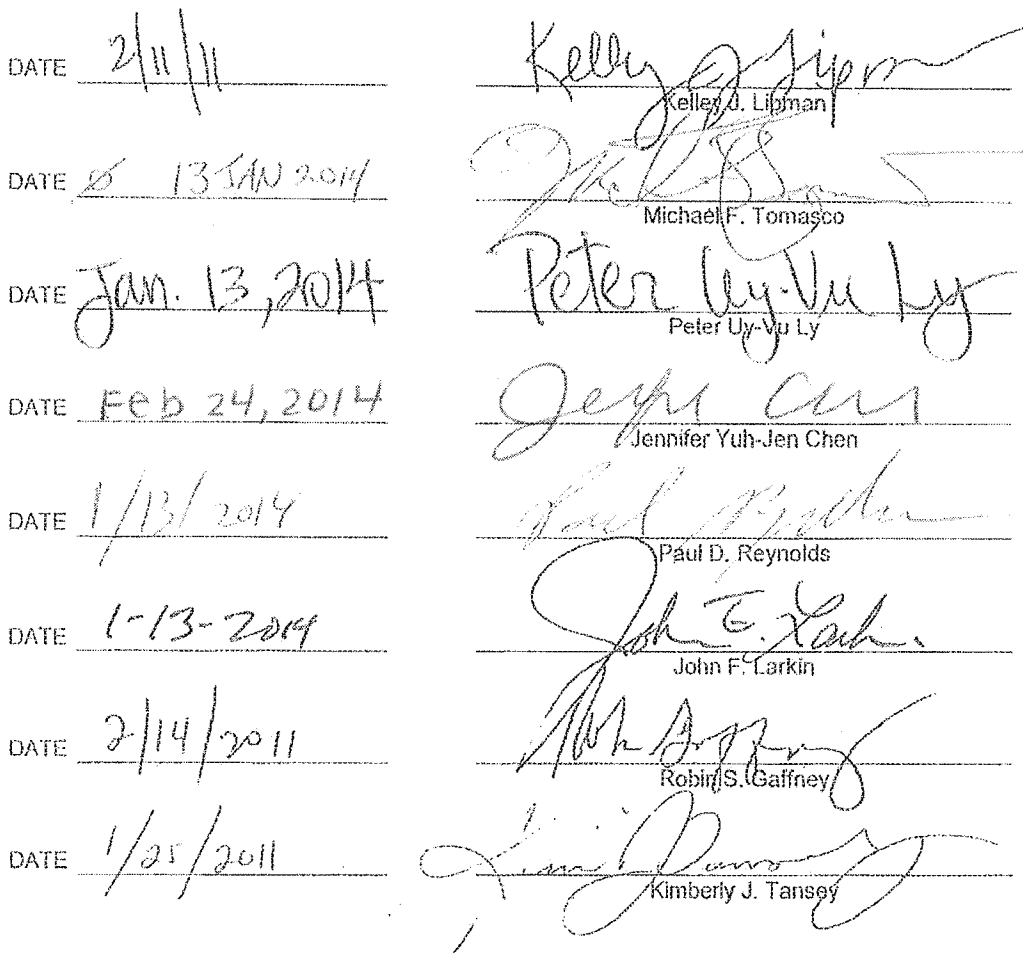 DATE 2/11/11 Kelly J. Lipm
Kelley J. Lipman
DATE 13 JAN 2014
Michael F. Tomasco
DATE Jan. 13, 2014 Peter Uy-Vu Ly
Peter Uy-Vu Ly
DATE Feb 24, 2014
Jennifer Yuh-Jen Chen
DATE 1/13/2014 Paul
Paul D. Reynolds
DATE 1-13-2014 John F. Larkin
John F. Larkin
DATE 2/14/2011
Robin S. Gaffney
DATE 1/25/2011
Kimberly J. Tansey